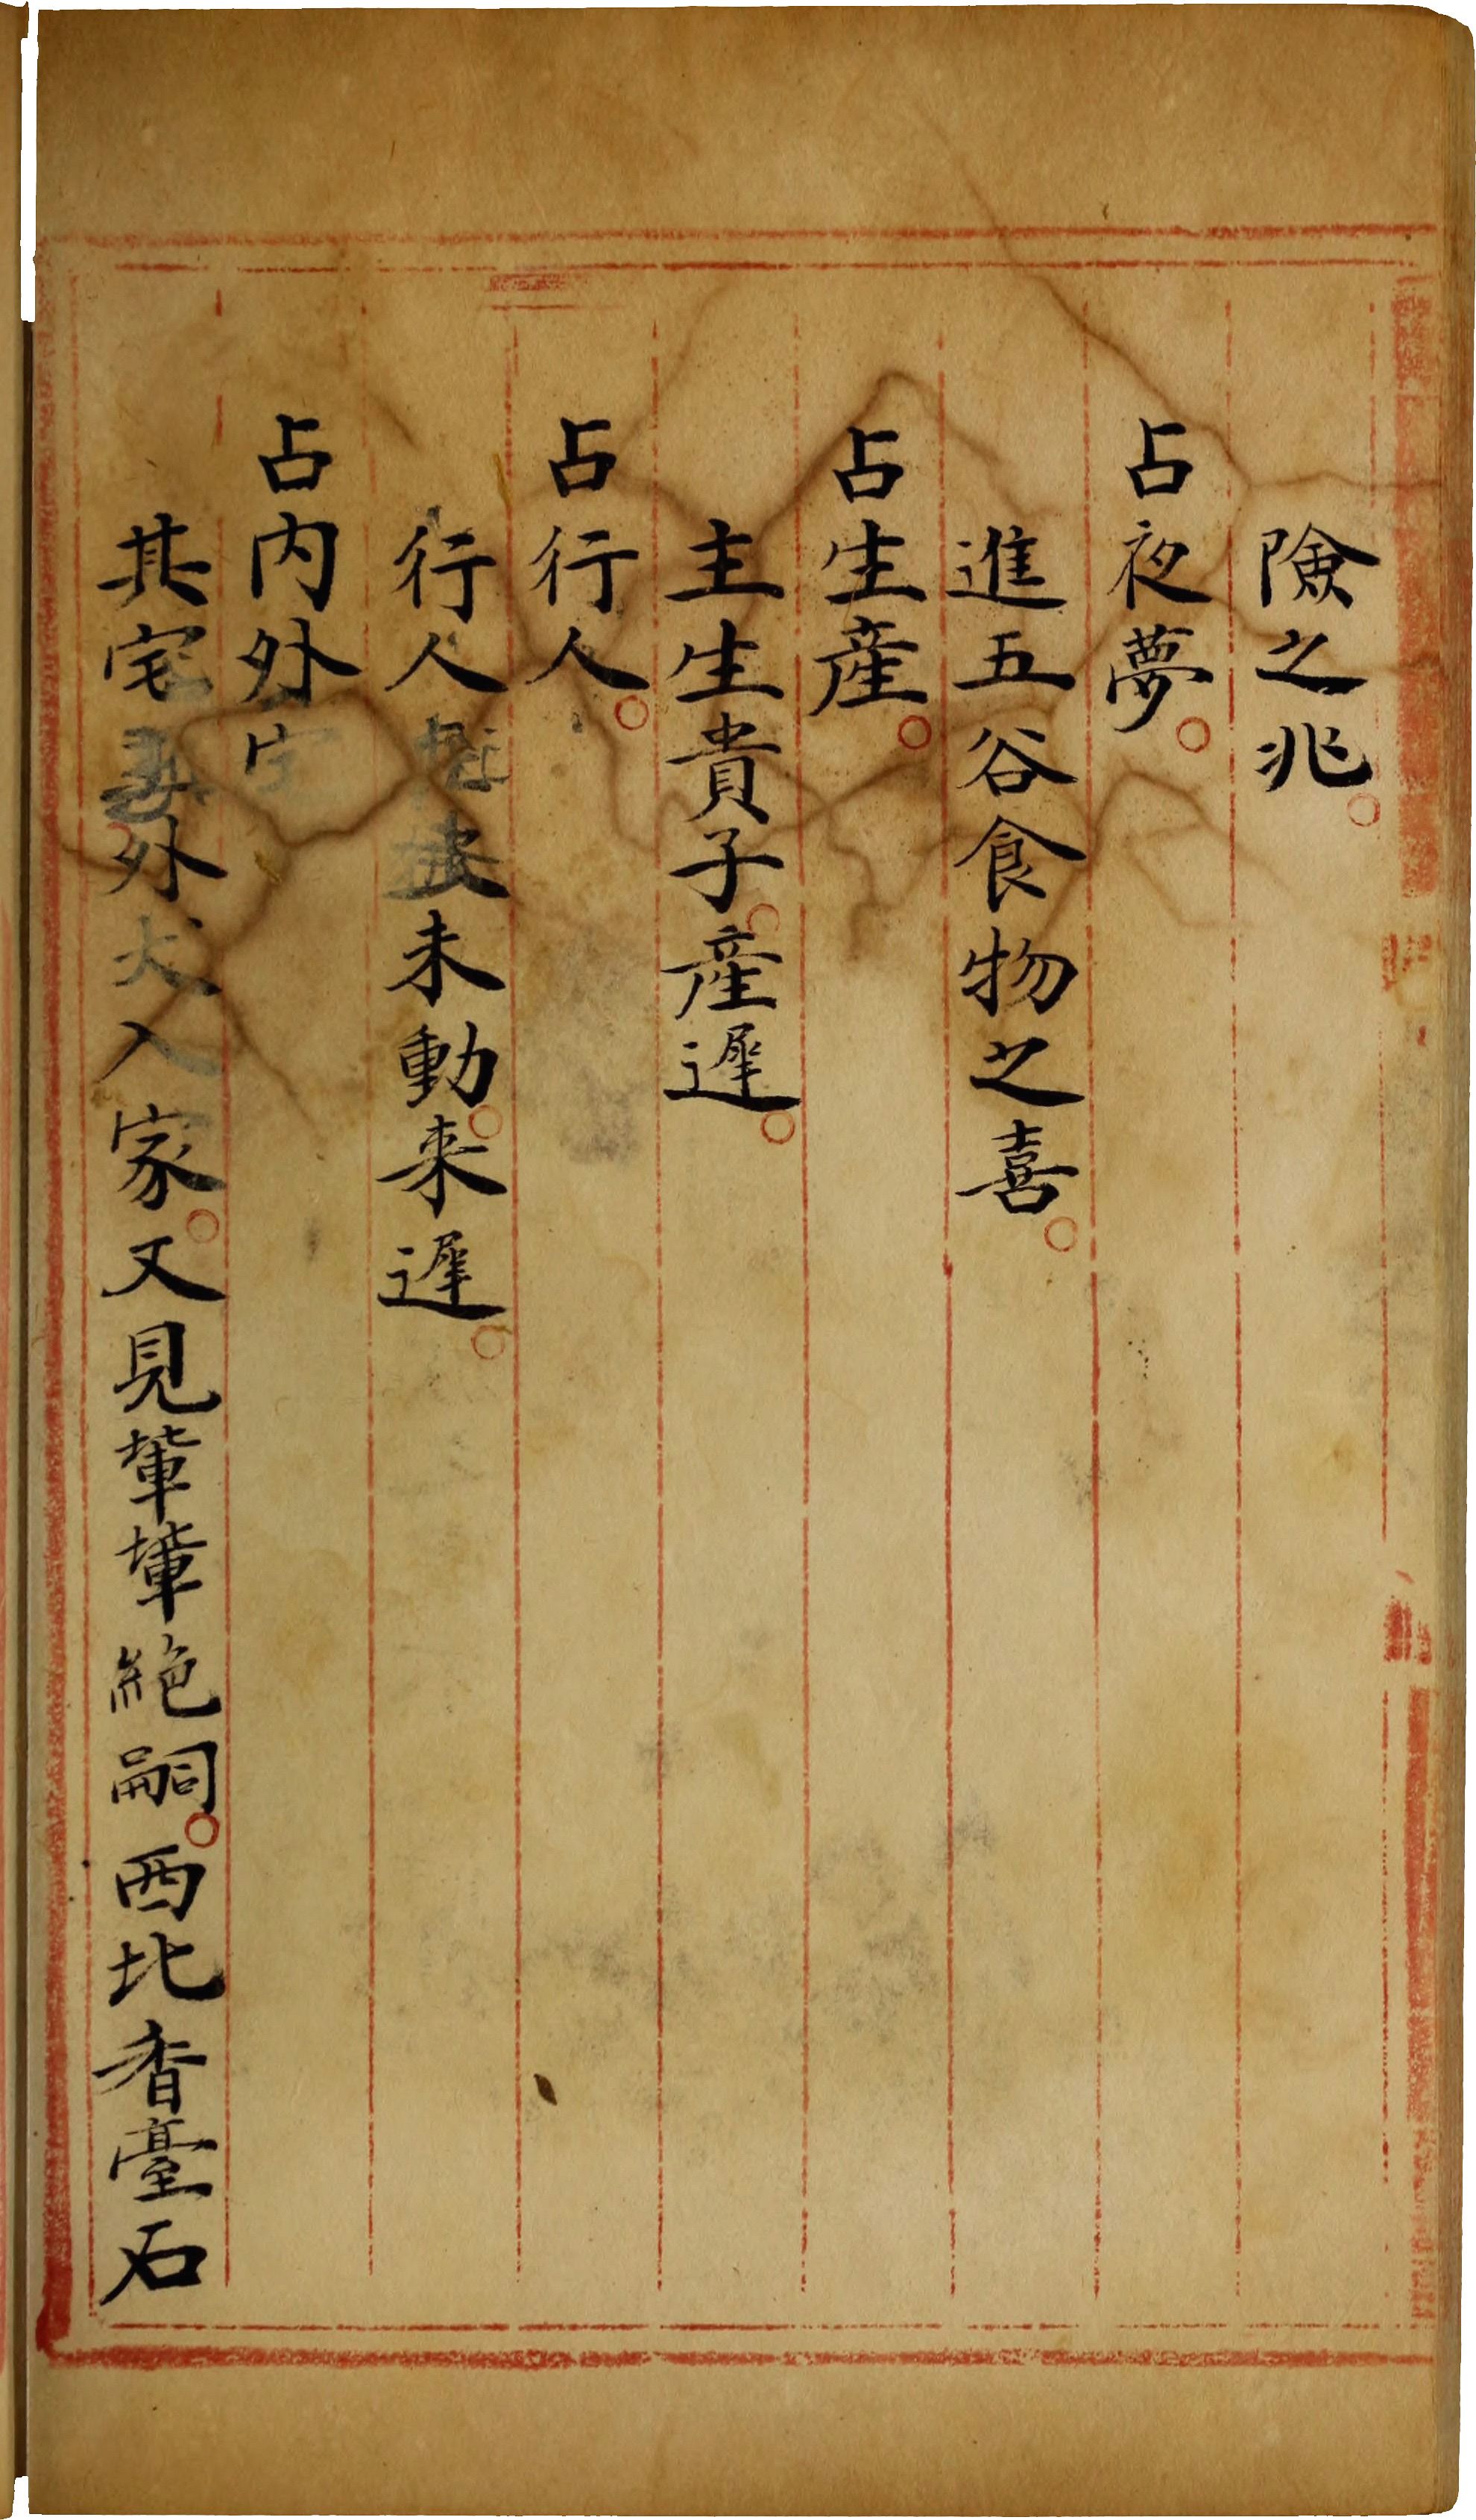 險之兆○
占夜夢○
進五谷食物之喜○
占生產○
主生貴子○產遲○
占行人○
行人未動○来遲○
占内外宅
其宅外犬入家○又見輂輂絶嗣○西北香臺石